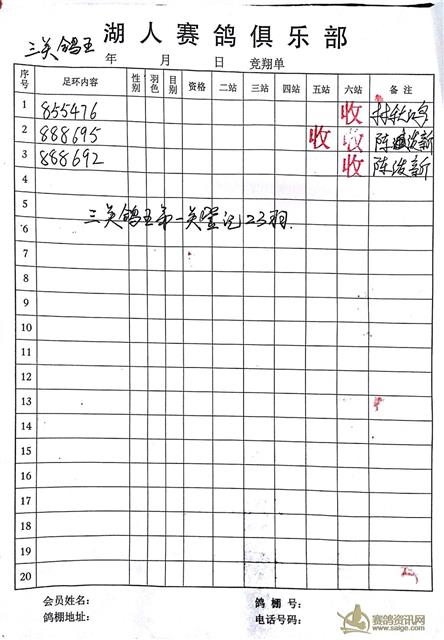 湖人赛鸽俱乐部
三关鸽王 年 月 日 竞翔单
序号 足环内容 性别 羽色 目别 资格 二站 三站 四站 五站 六站 备注
1 855476 收
2 888695 收 收 陈 浚新
3 888692 收 陈浚新
4
5
三关鸽王第一关登记23羽.
6
7
8
9
10
11
12
13
14
15
16
17
18
19
20
会员姓名: 鸽棚号:
鸽棚地址: 电话号码:
赛鸽资讯网
www.saige.com